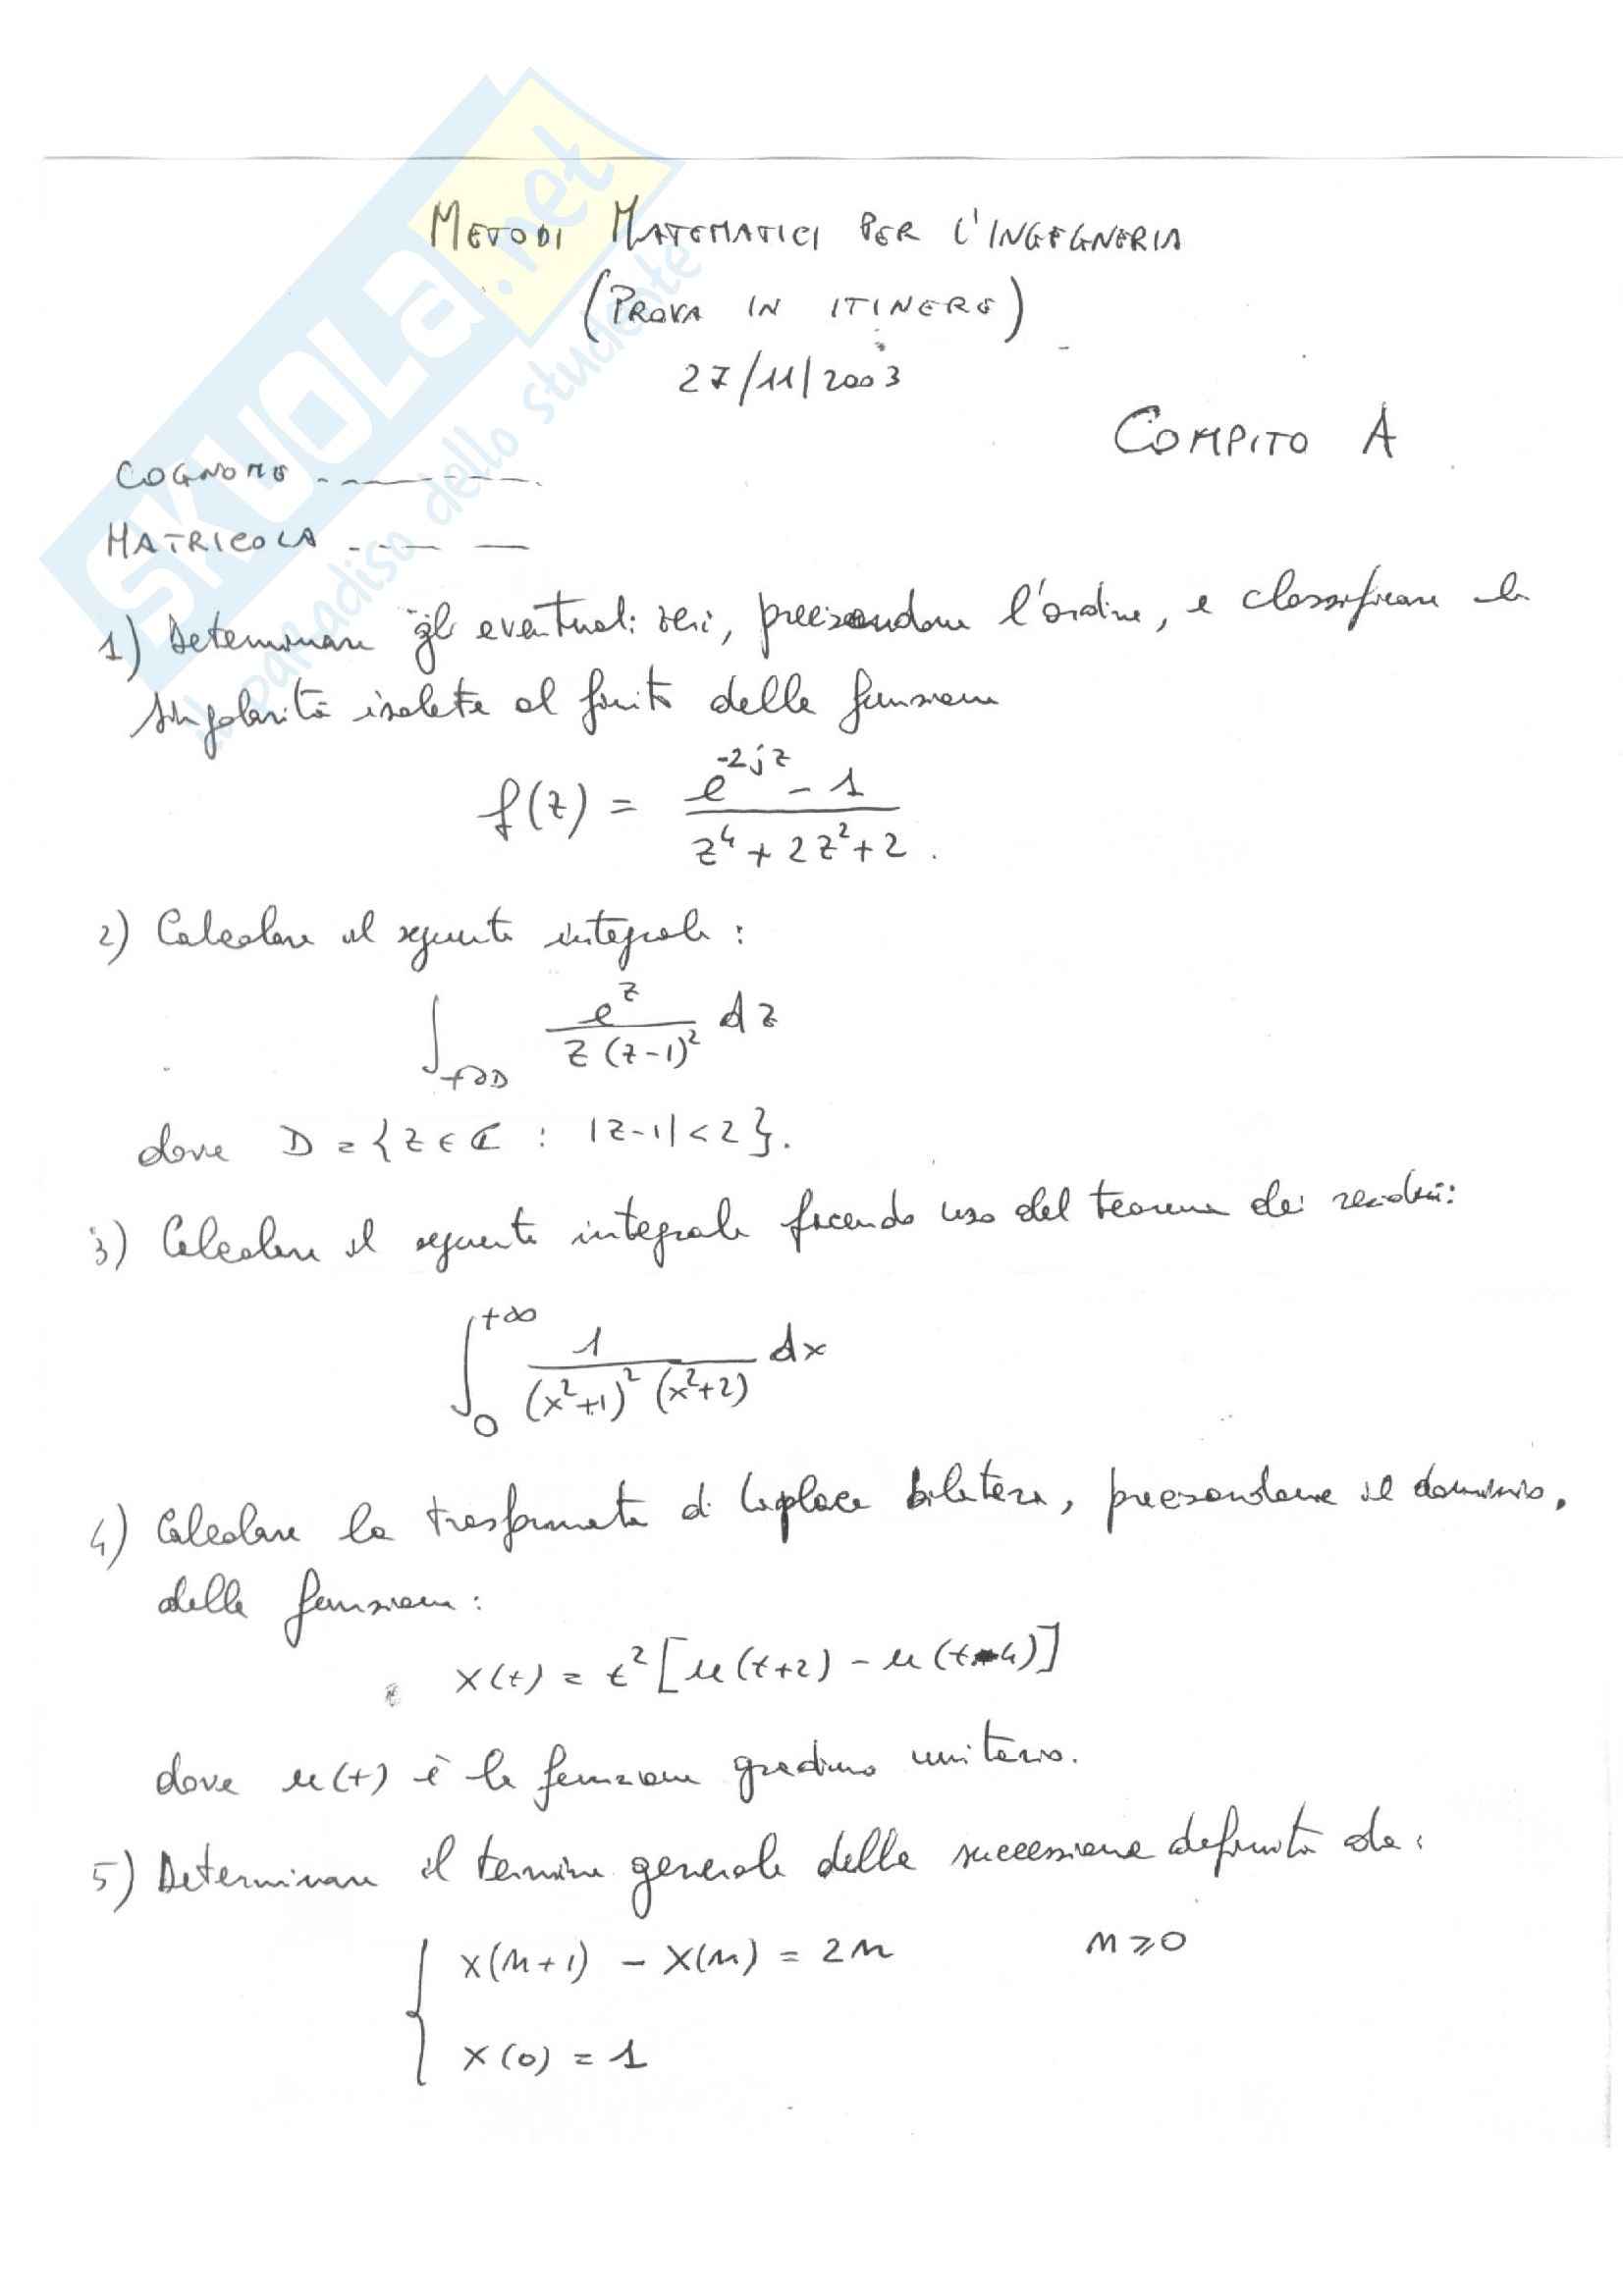 SKUOLA.net
il paradiso dello studente
METODI MATEMATICI PER L'INGEGNERIA
(PROVA IN ITINERE)
27/11/2003
COMPITO A
COGNOME ---------
MATRICOLA ---- —
1) Determinare gli eventuali zeri, precisandone l'ordine, e classificare le
singolarità isolate al finito della funzione
f(z) = (e^{-2jz} - 1) / (z^4 + 2z^2 + 2) .
2) Calcolare il seguente integrale :
∫_{+∂D} e^z / (z (z-1)^2) dz
dove D = {z ∈ ℂ : |z-1| < 2}.
3) Calcolare il seguente integrale facendo uso del teorema dei residui:
∫_0^{+∞} 1 / ((x^2+1)^2 (x^2+2)) dx
4) Calcolare la trasformata di Laplace bilatera, precisandone il dominio,
della funzione :
x(t) = t^2 [u(t+2) - u(t-4)]
dove u(t) è la funzione gradino unitario.
5) Determinare il termine generale della successione definita da :
{ x(n+1) - x(n) = 2n n ⩾ 0
x(0) = 1